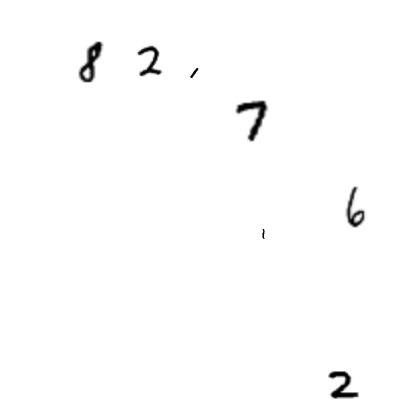 8 2 ,
7
6
2